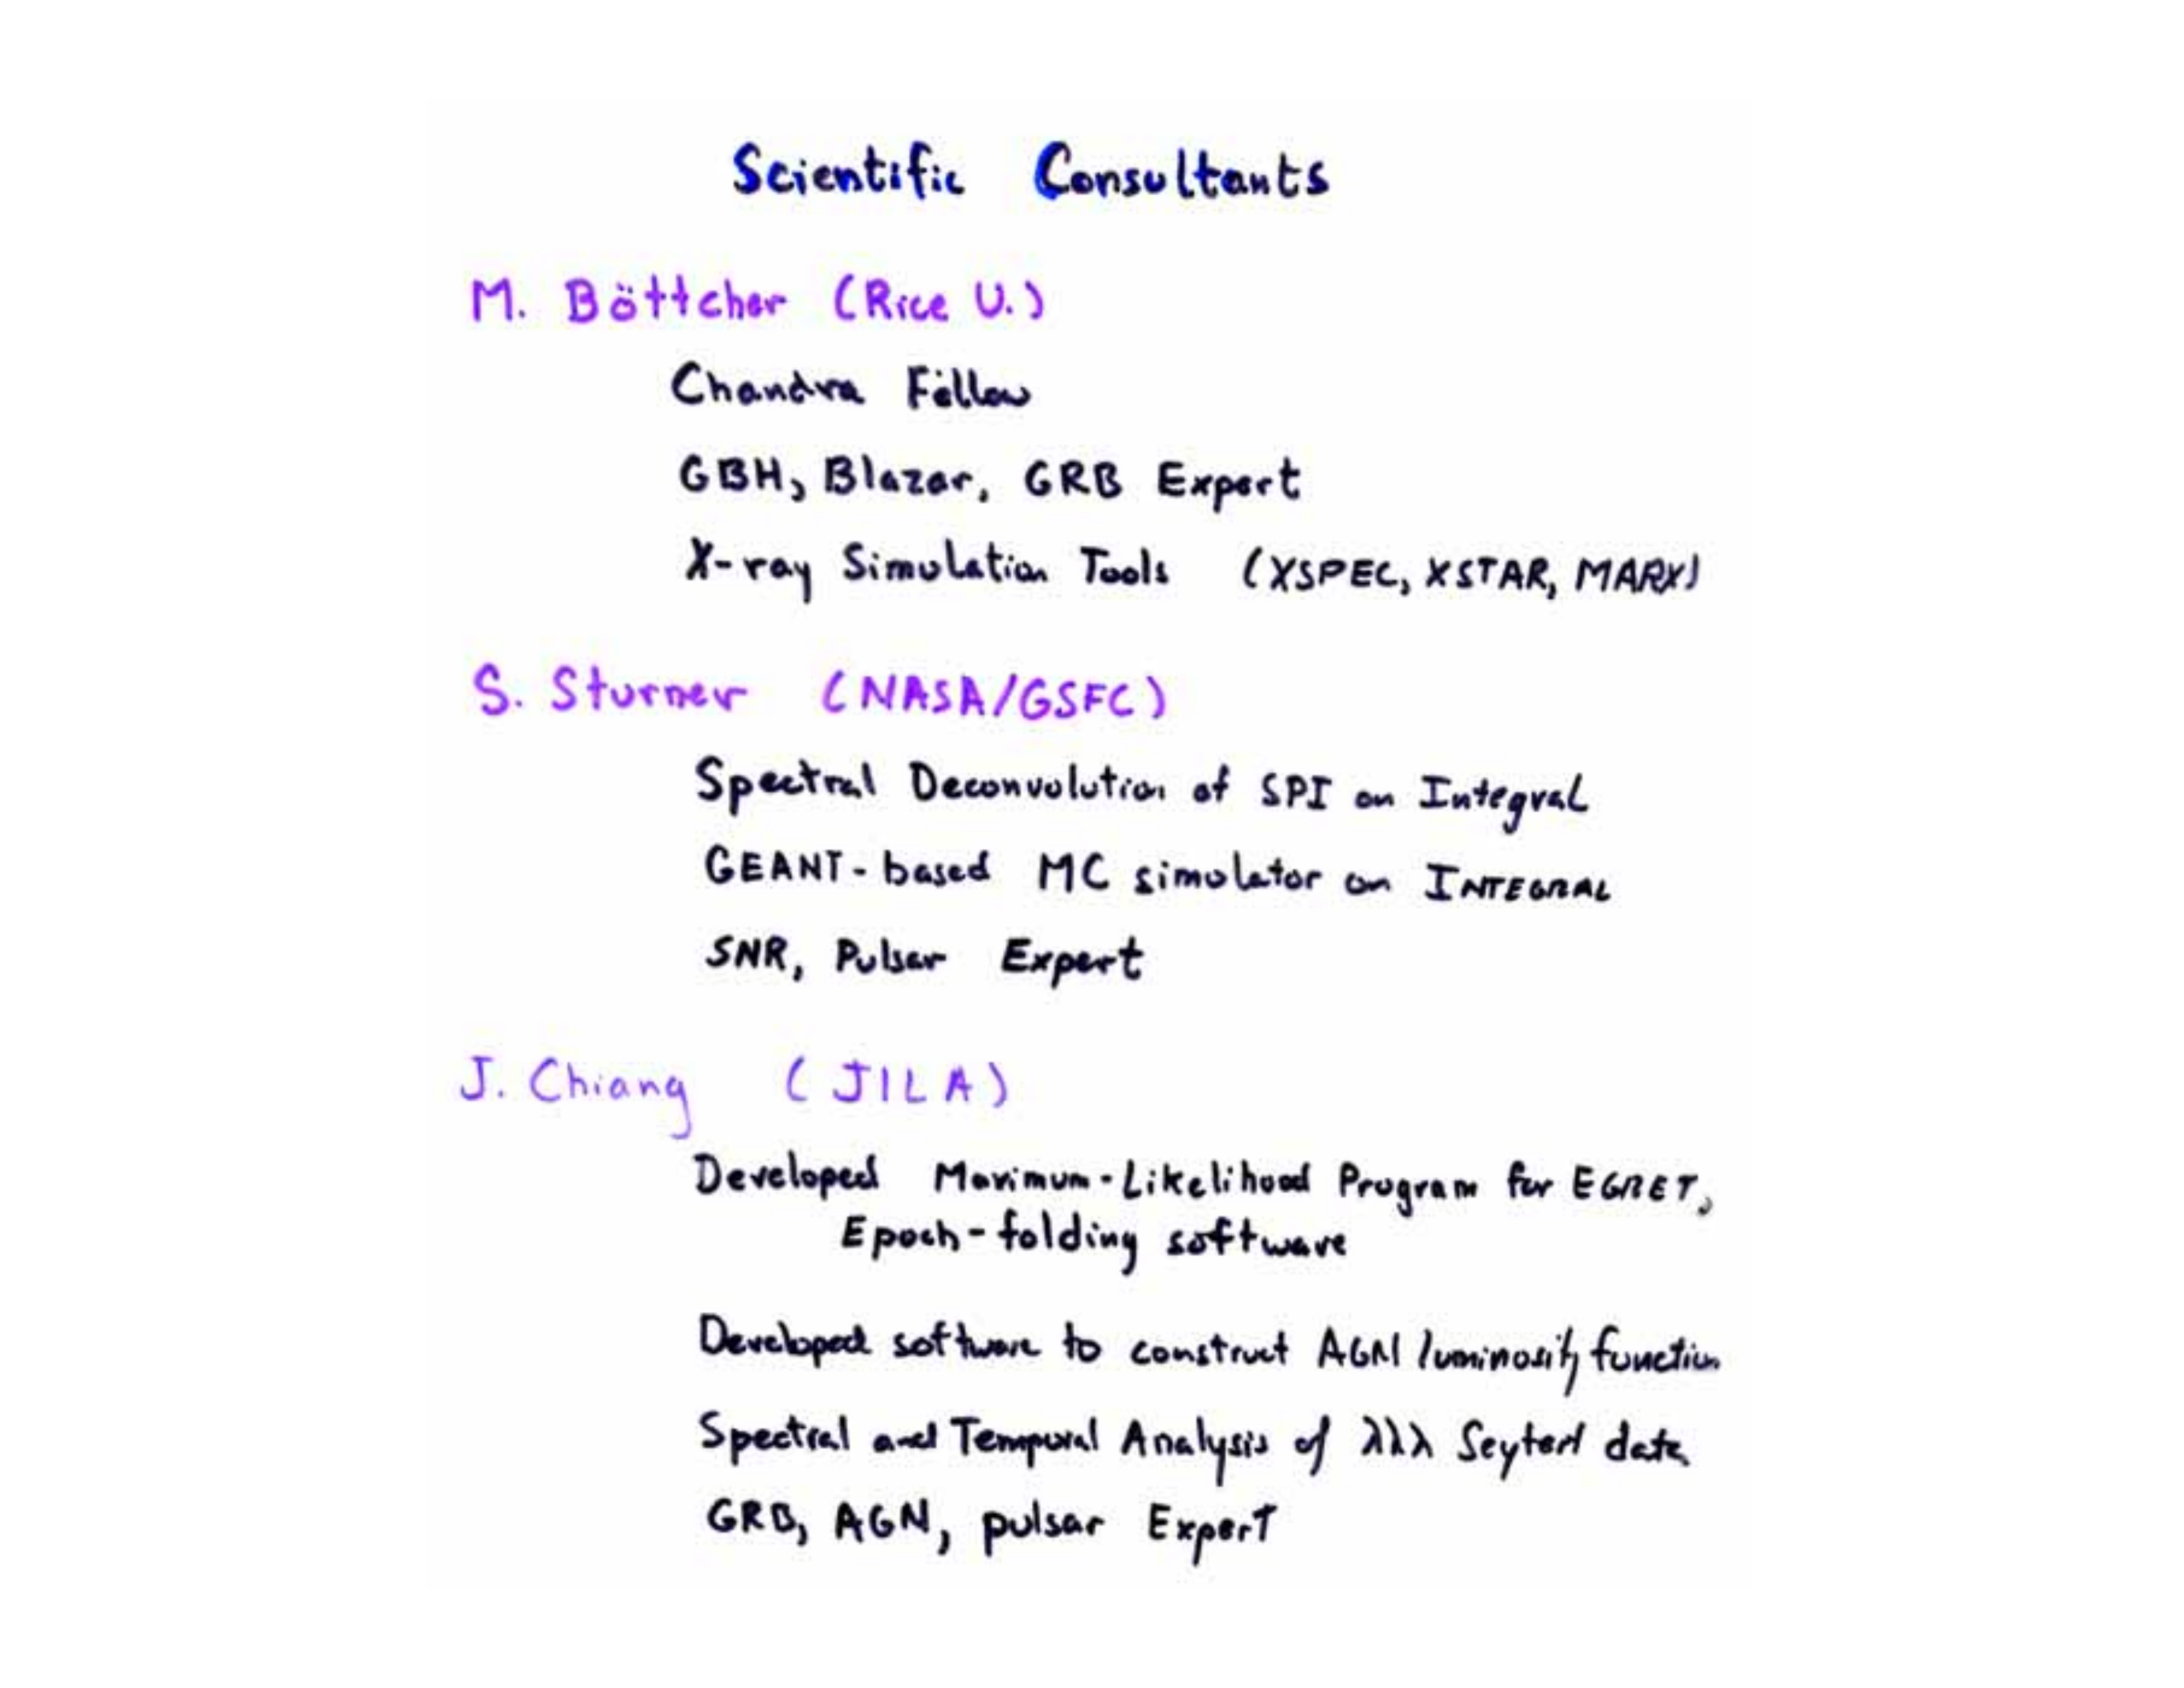 Scientific Consultants
M. Böttcher (Rice U.)
Chandra Fellow
GBH, Blazar, GRB Expert
X-ray Simulation Tools (XSPEC, XSTAR, MARX)
S. Sturner (NASA/GSFC)
Spectral Deconvolution of SPI on Integral
GEANT-based MC simulator on INTEGRAL
SNR, Pulsar Expert
J. Chiang (JILA)
Developed Maximum-Likelihood Program for EGRET,
Epoch-folding software
Developed software to construct AGN luminosity function
Spectral and Temporal Analysis of λλλ Seyfert data
GRB, AGN, pulsar Expert